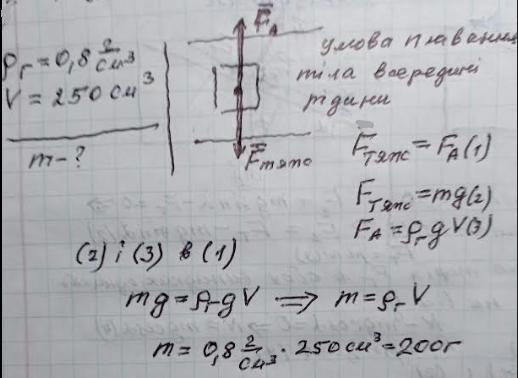 ρг = 0,8 г/см³
V = 250 см³
m - ?
F̄A
F̄тяж
умова плавання
тіла всередині
рідини
Fтяж = FA (1)
Fтяж = mg (2)
FA = ρг g V (3)
(2) і (3) в (1)
mg = ρг g V ⟹ m = ρг V
m = 0,8 г/см³ · 250 см³ = 200 г